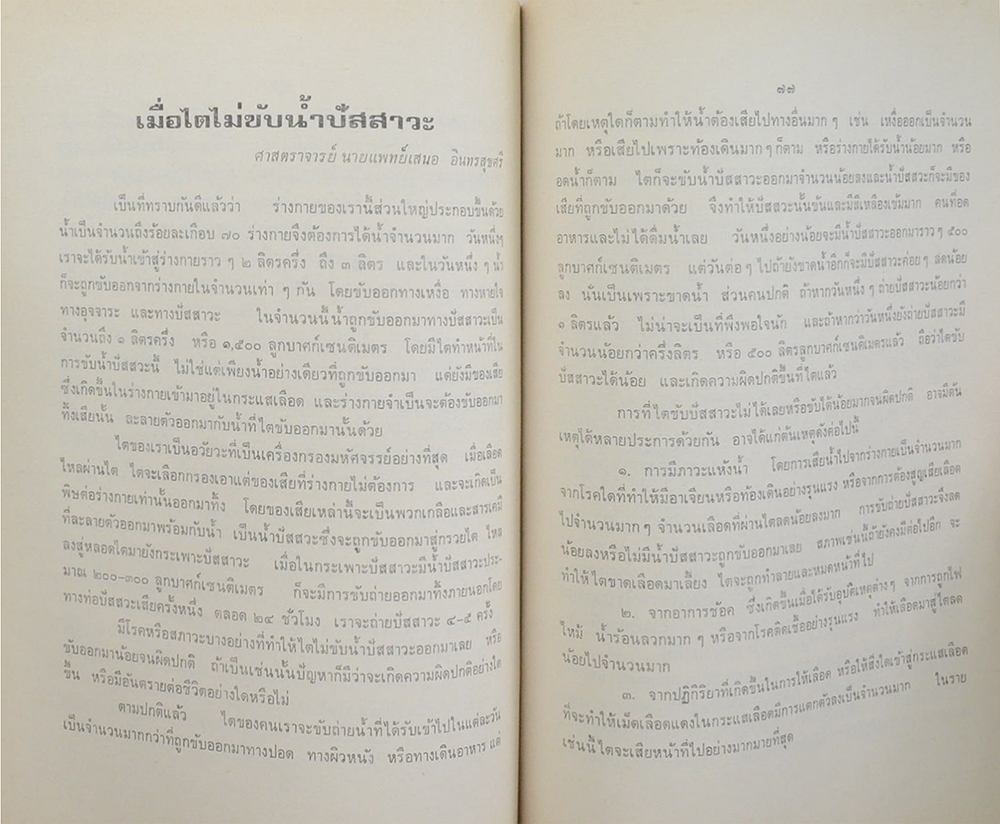 เมื่อไตไม่ขับน้ำปัสสาวะ
ศาสตราจารย์ นายแพทย์เสนอ อินทรสุขศรี
เป็นที่ทราบกันดีแล้วว่า ร่างกายของเรานี้ส่วนใหญ่ประกอบขึ้นด้วย
น้ำเป็นจำนวนถึงร้อยละเกือบ ๗๐ ร่างกายจึงต้องการได้น้ำจำนวนมาก วันหนึ่งๆ
เราจะได้รับน้ำเข้าสู่ร่างกายราว ๆ ๒ ลิตรครึ่ง ถึง ๓ ลิตร และในวันหนึ่ง ๆ น้ำ
ก็จะถูกขับออกจากร่างกายในจำนวนเท่า ๆ กัน โดยขับออกทางเหงื่อ ทางหายใจ
ทางอุจจาระ และทางปัสสาวะ ในจำนวนนี้น้ำถูกขับออกมาทางปัสสาวะเป็น
จำนวนถึง ๑ ลิตรครึ่ง หรือ ๑,๕๐๐ ลูกบาศก์เซนติเมตร โดยมีไตทำหน้าที่ใน
การขับน้ำปัสสาวะนี้ ไม่ใช่แต่เพียงน้ำอย่างเดียวที่ถูกขับออกมา แต่ยังมีของเสีย
ซึ่งเกิดขึ้นในร่างกายเข้ามาอยู่ในกระแสเลือด และร่างกายจำเป็นจะต้องขับออกมา
ทิ้งเสียนั้น ละลายตัวออกมากับน้ำที่ไตขับออกมานั้นด้วย
ไตของเราเป็นอวัยวะที่เป็นเครื่องกรองมหัศจรรย์อย่างที่สุด เมื่อเลือด
ไหลผ่านไต ไตจะเลือกกรองเอาแต่ของเสียที่ร่างกายไม่ต้องการ และจะเกิดเป็น
พิษต่อร่างกายเท่านั้นออกมาทิ้ง โดยของเสียเหล่านี้จะเป็นพวกเกลือและสารเคมี
ที่ละลายตัวออกมาพร้อมกับน้ำ เป็นน้ำปัสสาวะซึ่งจะถูกขับออกมาสู่กรวยไต ไหล
ลงสู่หลอดไตมายังกระเพาะปัสสาวะ เมื่อในกระเพาะปัสสาวะมีน้ำปัสสาวะประ-
มาณ ๒๐๐-๓๐๐ ลูกบาศก์เซนติเมตร ก็จะมีการขับถ่ายออกมาทิ้งภายนอกโดย
ทางท่อปัสสวะเสียครั้งหนึ่ง ตลอด ๒๔ ชั่วโมง เราจะถ่ายปัสสาวะ ๔-๕ ครั้ง
มีโรคหรือสภาวะบางอย่างที่ทำให้ไตไม่ขับน้ำปัสสาวะออกมาเลย หรือ
ขับออกมาน้อยจนผิดปกติ ถ้าเป็นเช่นนั้นปัญหาก็มีว่าจะเกิดความผิดปกติอย่างใด
ขึ้น หรือมีอันตรายต่อชีวิตอย่างใดหรือไม่
ตามปกติแล้ว ไตของคนเราจะขับถ่ายน้ำที่ได้รับเข้าไปในแต่ละวัน
เป็นจำนวนมากกว่าที่ถูกขับออกมาทางปอด ทางผิวหนัง หรือทางเดินอาหาร แต่
๗๗
ถ้าโดยเหตุใดก็ตามทำให้น้ำต้องเสียไปทางอื่นมาก ๆ เช่น เหงื่อออกเป็นจำนวน
มาก หรือเสียไปเพราะท้องเดินมาก ๆ ก็ตาม หรือร่างกายได้รับน้ำน้อยมาก หรือ
อดน้ำก็ตาม ไตก็จะขับน้ำปัสสาวะออกมาจำนวนน้อยลงและน้ำปัสสวะก็จะมีของ
เสียที่ถูกขับออกมาด้วย จึงทำให้ปัสสวะนั้นข้นและมีสีเหลืองเข้มมาก คนที่อด
อาหารและไม่ได้ดื่มน้ำเลย วันหนึ่งอย่างน้อยจะมีน้ำปัสสาวะออกมาราว ๆ ๕๐๐
ลูกบาศก์เซนติเมตร แต่วันต่อ ๆ ไปถ้ายังขาดน้ำอีกก็จะมีปัสสาวะค่อย ๆ ลดน้อย
ลง นั่นเป็นเพราะขาดน้ำ ส่วนคนปกติ ถ้าหากวันหนึ่ง ๆ ถ่ายปัสสาวะน้อยกว่า
๑ ลิตรแล้ว ไม่น่าจะเป็นที่พึงพอใจนัก และถ้าหากว่าวันหนึ่งยังถ่ายปัสสาวะมี
จำนวนน้อยกว่าครึ่งลิตร หรือ ๕๐๐ ลิตรลูกบาศก์เซนติเมตรแล้ว ถือว่าไตขับ
ปัสสาวะได้น้อย และเกิดความผิดปกติขึ้นที่ไตแล้ว
การที่ไตขับปัสสาวะไม่ได้เลยหรือขับได้น้อยมากจนผิดปกติ อาจมีต้น
เหตุได้หลายประการด้วยกัน อาจได้แก่ต้นเหตุดังต่อไปนี้
๑. การมีภาวะแห้งน้ำ โดยการเสียน้ำไปจากร่างกายเป็นจำนวนมาก
จากโรคใดที่ทำให้มีอาเจียนหรือท้องเดินอย่างรุนแรง หรือจากการต้องสูญเสียเลือด
ไปจำนวนมาก ๆ จำนวนเลือดที่ผ่านไตลดน้อยลงมาก การขับถ่ายปัสสาวะจึงลด
น้อยลงหรือไม่มีน้ำปัสสาวะถูกขับออกมาเลย สภาพเช่นนี้ถ้ายังคงมีต่อไปอีก จะ
ทำให้ไตขาดเลือดมาเลี้ยง ไตจะถูกทำลายและหมดหน้าที่ไป
๒. จากอาการช้อค ซึ่งเกิดขึ้นเมื่อได้รับอุบัติเหตุต่างๆ จากการถูกไฟ
ไหม้ น้ำร้อนลวกมาก ๆ หรือจากโรคติดเชื้ออย่างรุนแรง ทำให้เลือดมาสู่ไตลด
น้อยไปจำนวนมาก
๓. จากปฏิกิริยาที่เกิดขึ้นในการให้เลือด หรือให้สิ่งใดเข้าสู่กระแสเลือด
ที่จะทำให้เม็ดเลือดแดงในกระแสเลือดมีการแตกตัวลงเป็นจำนวนมาก ในราย
เช่นนี้ไตจะเสียหน้าที่ไปอย่างมากมายที่สุด